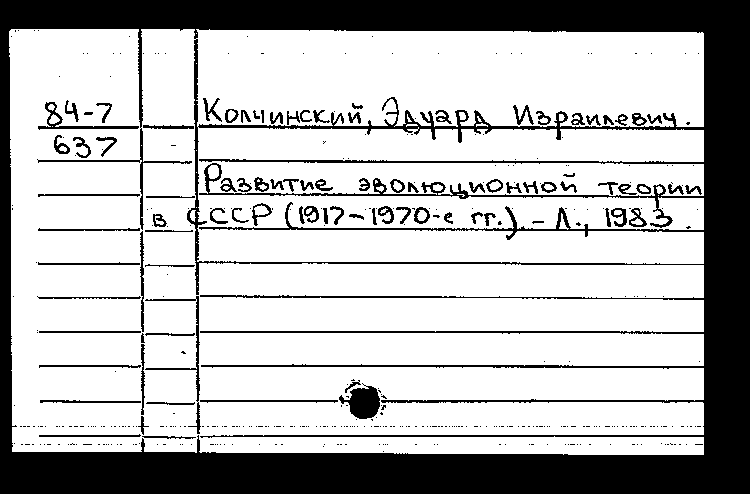 84-7 Колчинский, Эдуард Израилевич.
637
Развитие эволюционной теории
в СССР (1917-1970-е гг.). - Л., 1983.